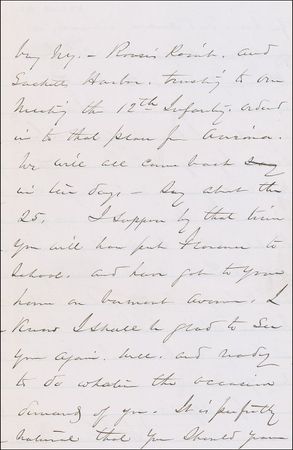 by way. - Rouse's Point. and
Sackets Harbor. trusting to our
meeting the 12th Infantry. ordered
in to that place for Arizona.
We will all come back say
in ten days - say about the
25. I suppose by that time
you will have put Florence to
School. and have got to your
home on Vermont Avenue. I
know I shall be glad to see
you again. well. and ready
to do whatever the occasion
demands of you. It is perfectly
natural that you should